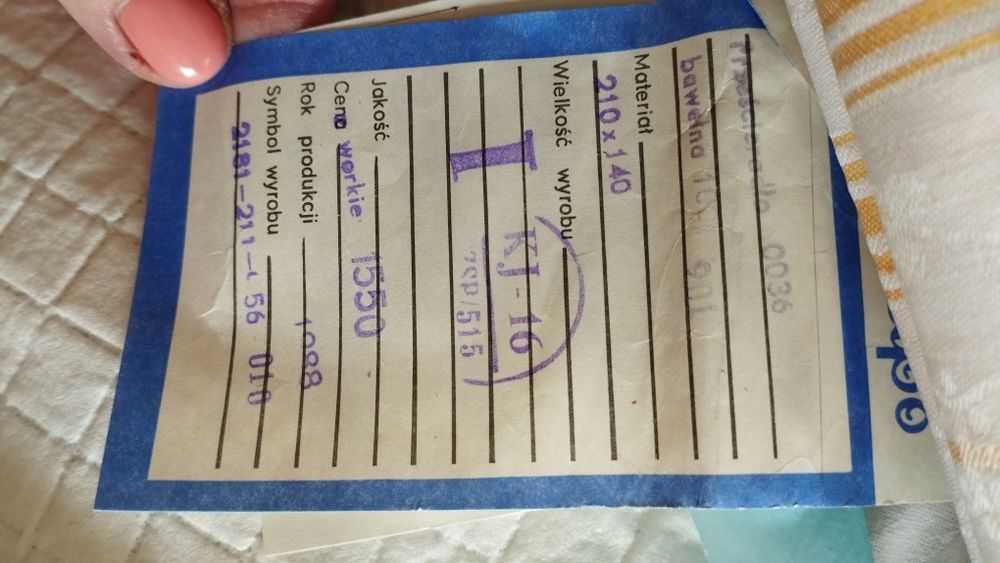 Prześcieradło 0036
bawełna 10
Materiał
210 x 140
Wielkość wyrobu
I KJ-16
/515
Jakość
Cena workie 1550 -
Rok produkcji 1988
Symbol wyrobu
2181-211- 56 010